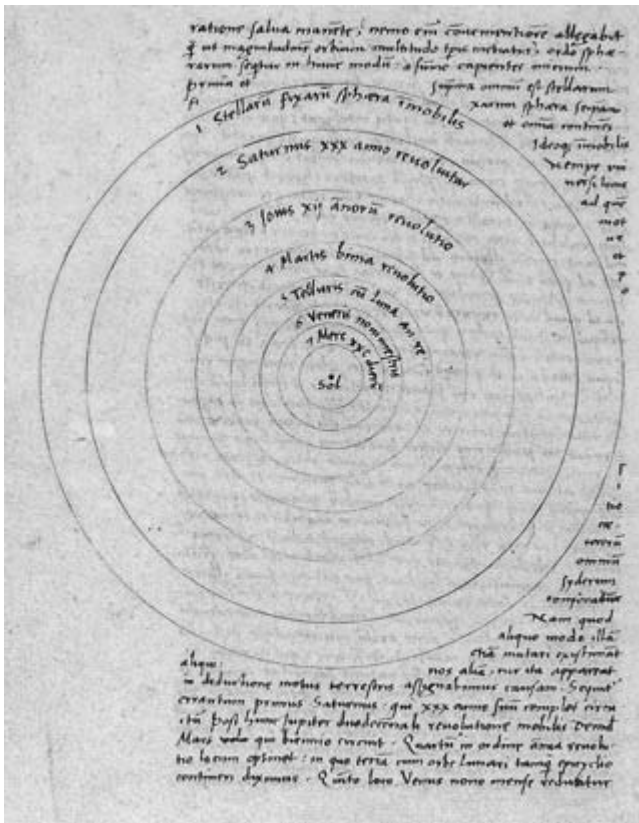 ratione salua manēte, nemo em̄ conuenientiorē allegabit
q̄ ut magnitudinē orbium multitudo tp̄is metiatur, ordo sphę-
rarum sequitur in hunc modū: a sum̄o capientes initium.
prima et suprema omniū est stellarum
fixarum sphęra seipsam
et omnia continēs
Ideoq; im̄obilis
Nempe uni
uersi locus
ad quē
mot
us
et
1 Stellarū fixarū sphęra imobilis
2 Saturnus xxx anno reuoluitur
3 Iouis xij annorū reuolutio
4 Martis bima reuolutio
5 Telluris cū luna an re
6 Veneris nonimestris
7 Merc xxc dierū
Sol
ce-
terorū
omniū
syderum
conferatur
Nam quod
aliquo modo illā
etiā mutari existimāt
aliqui: nos aliā, cur ita appareat
in deductione motus terrestris assignabimus causam. Sequit̄
errantium primus Saturnus: qui xxx anno suū complet circu
itū post hunc Jupiter duodecennali reuolutione mobilis Deinde
Mars qui biennio circuit. Quartū in ordine annua reuolu-
tio locum optinet: in quo terra cum orbe lunari tanq̄ epicyclio
contineri diximus. Quinto loco Venus nono mense reducitur